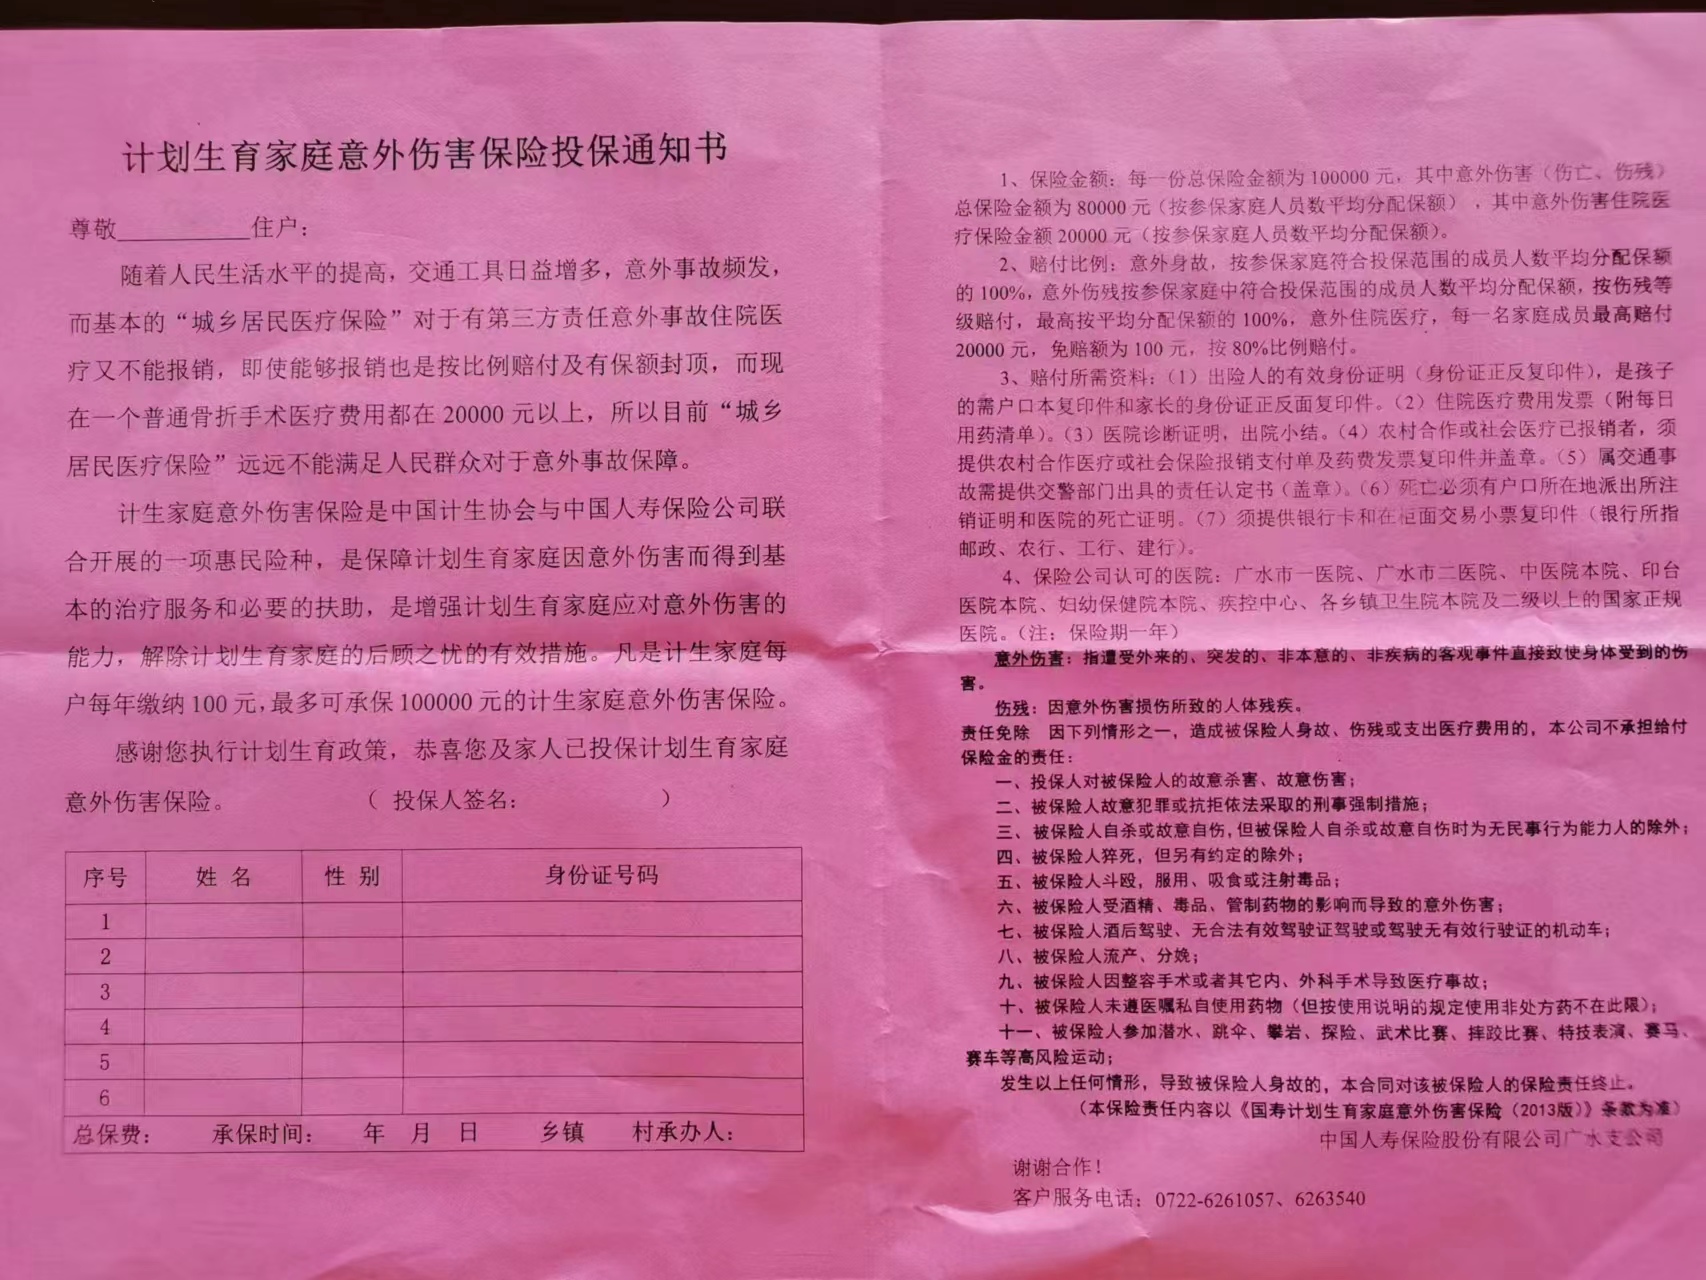 计划生育家庭意外伤害保险投保通知书
尊敬__________住户：
随着人民生活水平的提高，交通工具日益增多，意外事故频发，
而基本的“城乡居民医疗保险”对于有第三方责任意外事故住院医
疗又不能报销，即使能够报销也是按比例赔付及有保额封顶，而现
在一个普通骨折手术医疗费用都在 20000 元以上，所以目前“城乡
居民医疗保险”远远不能满足人民群众对于意外事故保障。
计生家庭意外伤害保险是中国计生协会与中国人寿保险公司联
合开展的一项惠民险种，是保障计划生育家庭因意外伤害而得到基
本的治疗服务和必要的扶助，是增强计划生育家庭应对意外伤害的
能力，解除计划生育家庭的后顾之忧的有效措施。凡是计生家庭每
户每年缴纳 100 元，最多可承保 100000 元的计生家庭意外伤害保险。
感谢您执行计划生育政策，恭喜您及家人已投保计划生育家庭
意外伤害保险。 （ 投保人签名： ）
序号 姓 名 性 别 身份证号码
1
2
3
4
5
6
总保费： 承保时间： 年 月 日 乡镇 村承办人：
1、保险金额：每一份总保险金额为 100000 元，其中意外伤害（伤亡、伤残）
总保险金额为 80000 元（按参保家庭人员数平均分配保额），其中意外伤害住院医
疗保险金额 20000 元（按参保家庭人员数平均分配保额）。
2、赔付比例：意外身故，按参保家庭符合投保范围的成员人数平均分配保额
的 100%，意外伤残按参保家庭中符合投保范围的成员人数平均分配保额，按伤残等
级赔付，最高按平均分配保额的 100%，意外住院医疗，每一名家庭成员最高赔付
20000 元，免赔额为 100 元，按 80%比例赔付。
3、赔付所需资料：（1）出险人的有效身份证明（身份证正反复印件），是孩子
的需户口本复印件和家长的身份证正反面复印件。（2）住院医疗费用发票（附每日
用药清单）。（3）医院诊断证明，出院小结。（4）农村合作或社会医疗已报销者，须
提供农村合作医疗或社会保险报销支付单及药费发票复印件并盖章。（5）属交通事
故需提供交警部门出具的责任认定书（盖章）。（6）死亡必须有户口所在地派出所注
销证明和医院的死亡证明。（7）须提供银行卡和在柜面交易小票复印件（银行所指
邮政、农行、工行、建行）。
4、保险公司认可的医院：广水市一医院、广水市二医院、中医院本院、印台
医院本院、妇幼保健院本院、疾控中心、各乡镇卫生院本院及二级以上的国家正规
医院。（注：保险期一年）
意外伤害：指遭受外来的、突发的、非本意的、非疾病的客观事件直接致使身体受到的伤
害。
伤残：因意外伤害损伤所致的人体残疾。
责任免除 因下列情形之一，造成被保险人身故、伤残或支出医疗费用的，本公司不承担给付
保险金的责任：
一、投保人对被保险人的故意杀害、故意伤害；
二、被保险人故意犯罪或抗拒依法采取的刑事强制措施；
三、被保险人自杀或故意自伤，但被保险人自杀或故意自伤时为无民事行为能力人的除外；
四、被保险人猝死，但另有约定的除外；
五、被保险人斗殴，服用、吸食或注射毒品；
六、被保险人受酒精、毒品、管制药物的影响而导致的意外伤害；
七、被保险人酒后驾驶、无合法有效驾驶证驾驶或驾驶无有效行驶证的机动车；
八、被保险人流产、分娩；
九、被保险人因整容手术或者其它内、外科手术导致医疗事故；
十、被保险人未遵医嘱私自使用药物（但按使用说明的规定使用非处方药不在此限）；
十一、被保险人参加潜水、跳伞、攀岩、探险、武术比赛、摔跤比赛、特技表演、赛马、
赛车等高风险运动；
发生以上任何情形，导致被保险人身故的，本合同对该被保险人的保险责任终止。
（本保险责任内容以《国寿计划生育家庭意外伤害保险（2013版）》条款为准）
中国人寿保险股份有限公司广水支公司
谢谢合作！
客户服务电话：0722-6261057、6263540